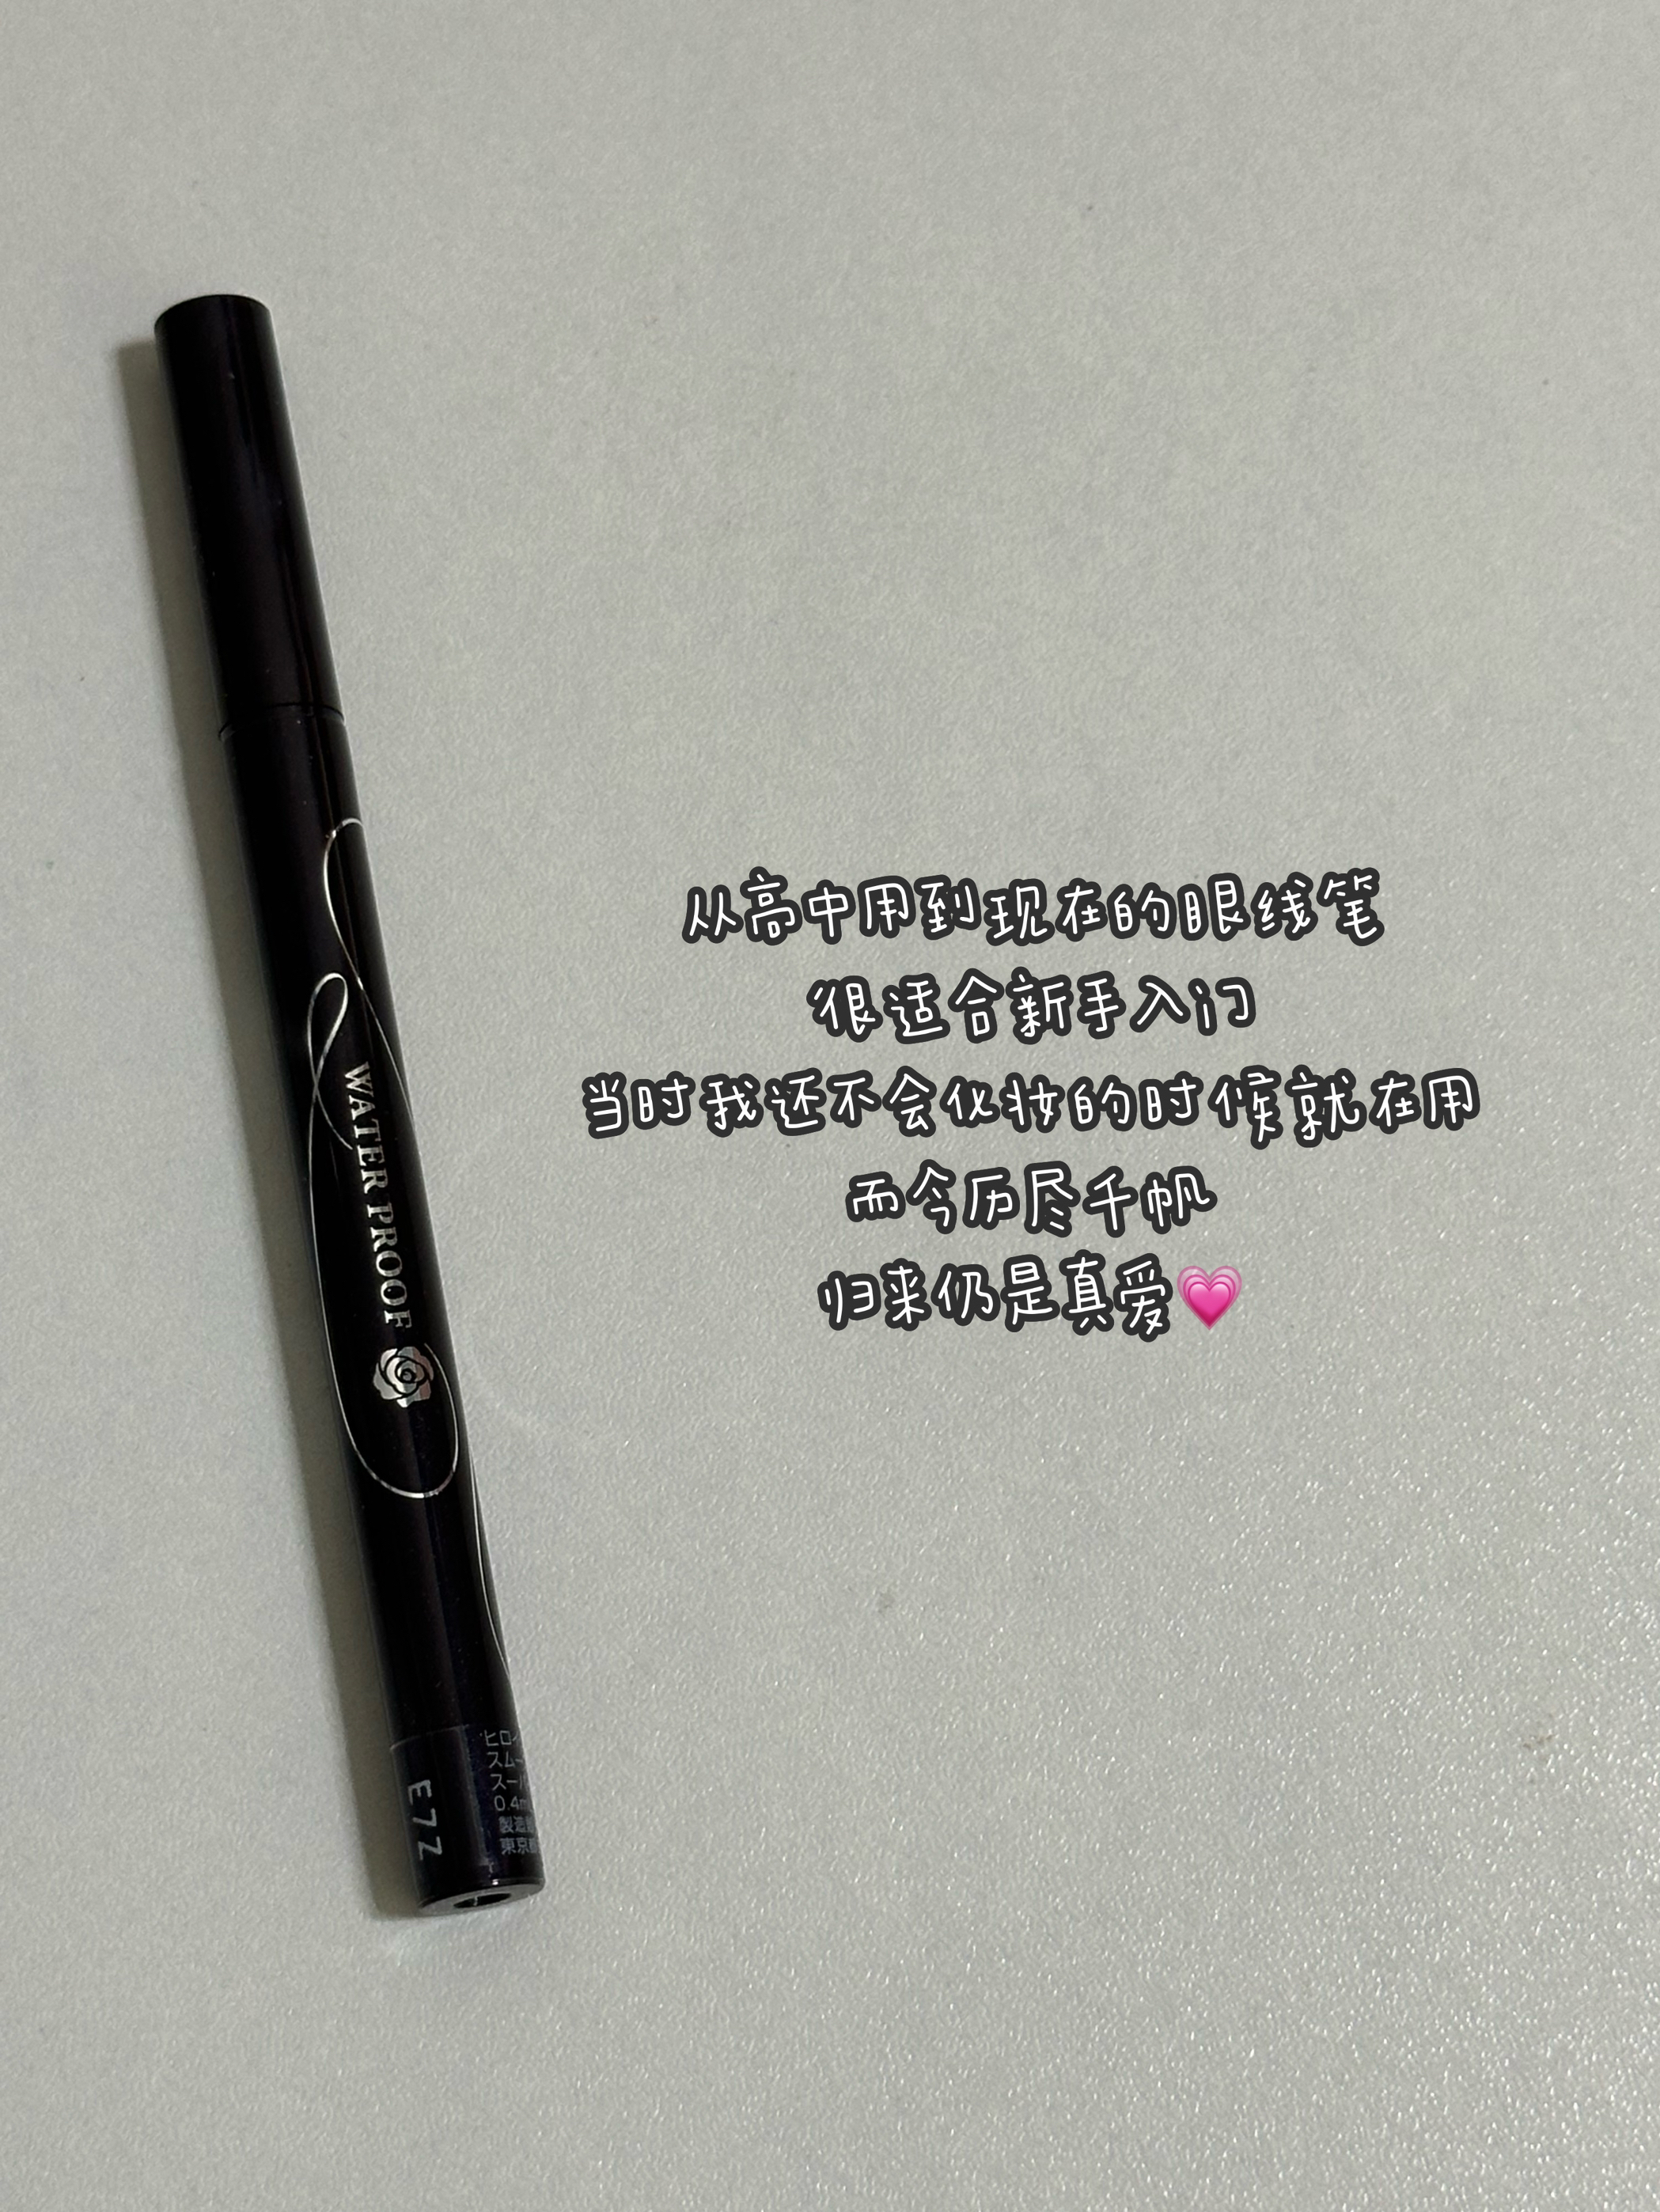 从高中用到现在的眼线笔
很适合新手入门
当时我还不会化妆的时候就在用
而今历尽千帆
归来仍是真爱💗
WATER PROOF
E7Z
ヒロイ
スム
スー
0.4m
製造
東京都